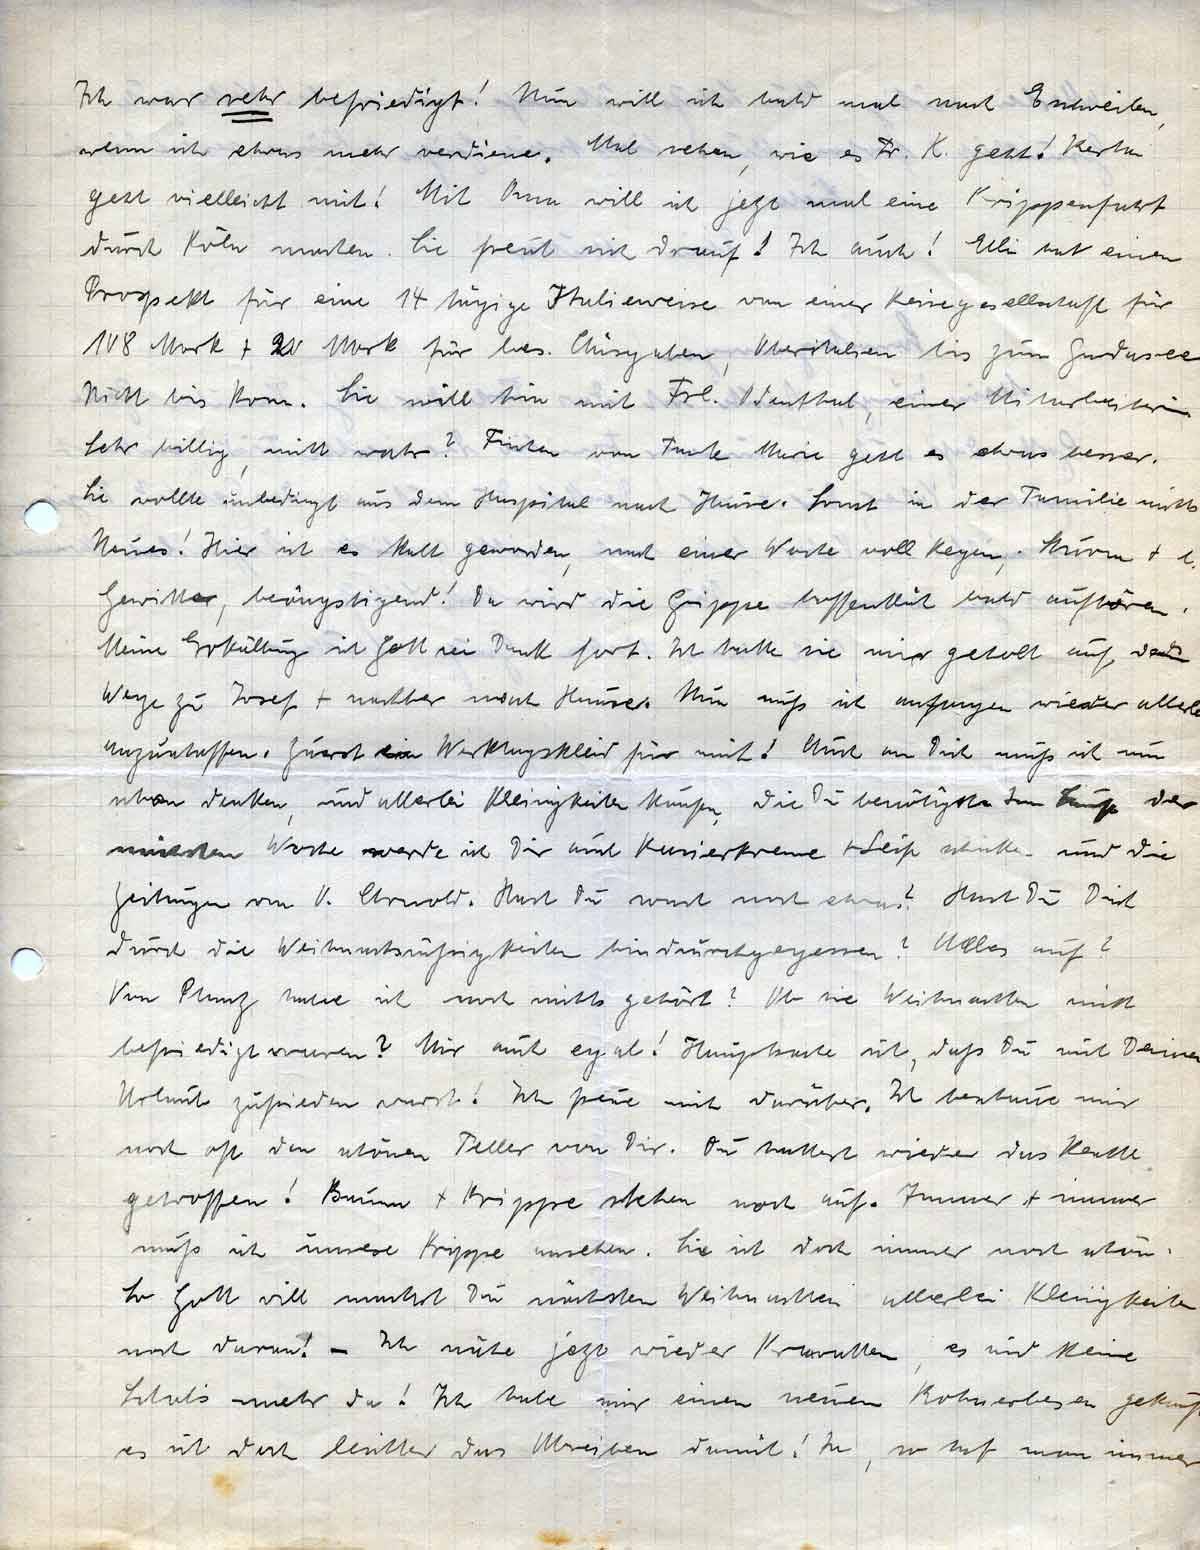 Ich war sehr befriedigt! Nun will ich bald mal nach Eschweiler,
wenn ich etwas mehr verdiene. Mal sehen, wie es Fr. K. geht!
geht vielleicht mit! Mit Oma will ich jetzt mal eine Krippenfahrt
durch Köln machen. Sie freut sich drauf! Ich auch! Elli hat einen
Prospekt für eine 14 tägige Italienreise von einer Reisegesellschaft für
108 Mark + 20 Mark für bes. Ausgaben, Oberitalien bis zum Gardasee
Nicht bis Rom. Sie will hin mit Frl. Odenthal, einer Mitarbeiterin
Sehr billig, nicht wahr? von Tante Marie geht es etwas besser.
Sie wollte unbedingt aus dem Hospital nach Hause. Sonst in der Familie nichts
Neues! Hier ist es kalt geworden, nach einer Woche voll Regen, Sturm +
Gewitter, beängstigend! Da wird die Grippe hoffentlich bald aufhören.
Meine Erkältung ist Gott sei Dank fort. Ich hatte sie mir geholt auf dem
Wege zu Josef + nachher nach Hause. Nun muß ich anfangen wieder allerlei
anzuschaffen. Zuerst ein Werktagskleid für mich! Auch an Dich muß ich nun
schon denken, und allerlei Kleinigkeiten kaufen, die Du benötigst. Im Laufe der
nächsten Woche werde ich Dir auch Rasierkreme + Seife schicken und die
Zeitungen von V. Arnold. Hast Du sonst noch etwas? Hast Du Dich
durch die Weihnachtssüßigkeiten hindurchgegessen? Alles auf?
Von habe ich noch nichts gehört? Ob sie Weihnachten nicht
befriedigt waren? Mir auch egal! Hauptsache ist, daß Du mit Deinem
Urlaub zufrieden warst! Ich freue mich darüber. Ich beschaue mir
noch oft den schönen Teller von Dir. Du hattest wieder das Rechte
getroffen! Baum + Krippe stehen noch auf. Immer + immer
muß ich unsere Krippe ansehen. Sie ist doch immer noch schön.
So Gott will machst Du nächsten Weihnachten allerlei Kleinigkeiten
noch daran! – Ich nähe jetzt wieder Krawatten, es sind keine
Schals mehr da! Ich habe mir einen neuen Bohnerbesen gekauft
es ist doch leichter das Abreiben damit! Ja, so hat man immer